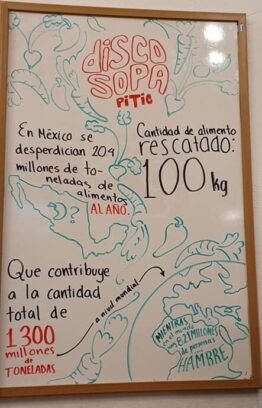 disco
SOPA
PiTiC
En México se
desperdician 20.4
millones de to-
neladas de
alimentos
AL AÑO.
Cantidad de alimento
rescatado:
100 kg
¿??
Que contribuye
a la cantidad
total de
1300
millones
de
TONELADAS
a nivel mundial
MIENTRAS
en el mundo
821 MILLONES
de personas
HAMBRE